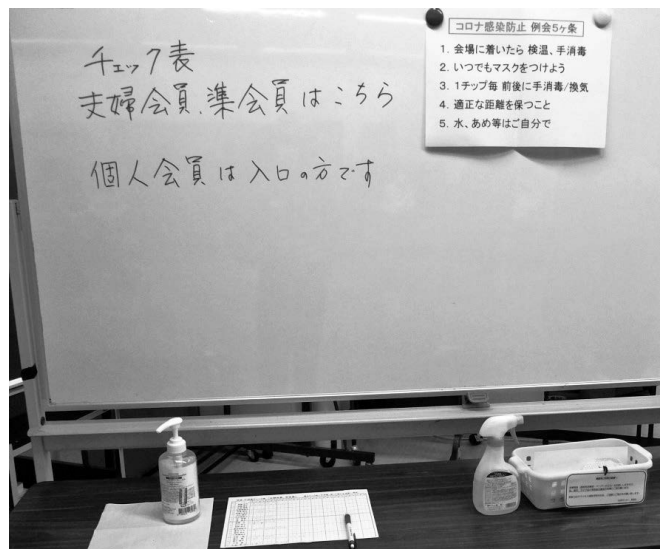 チェック表
夫婦会員、準会員はこちら
個人会員は入口の方です
コロナ感染防止 例会5ヶ条
1. 会場に着いたら 検温、手消毒
2. いつでもマスクをつけよう
3. 1チップ毎 前後に手消毒/換気
4. 適正な距離を保つこと
5. 水、あめ等はご自分で